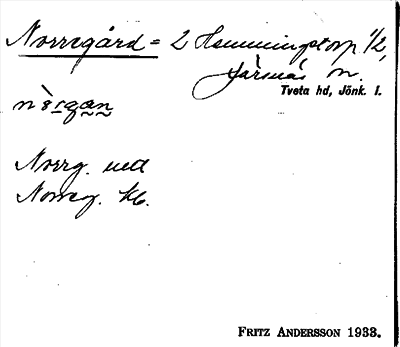 Norregård = 2 Hemmingstorp 1/2,
Järsnäs sn.
Tveta hd, Jönk. l.
Norrg. utt
Norreg. kb.
FRITZ ANDERSSON 1933.